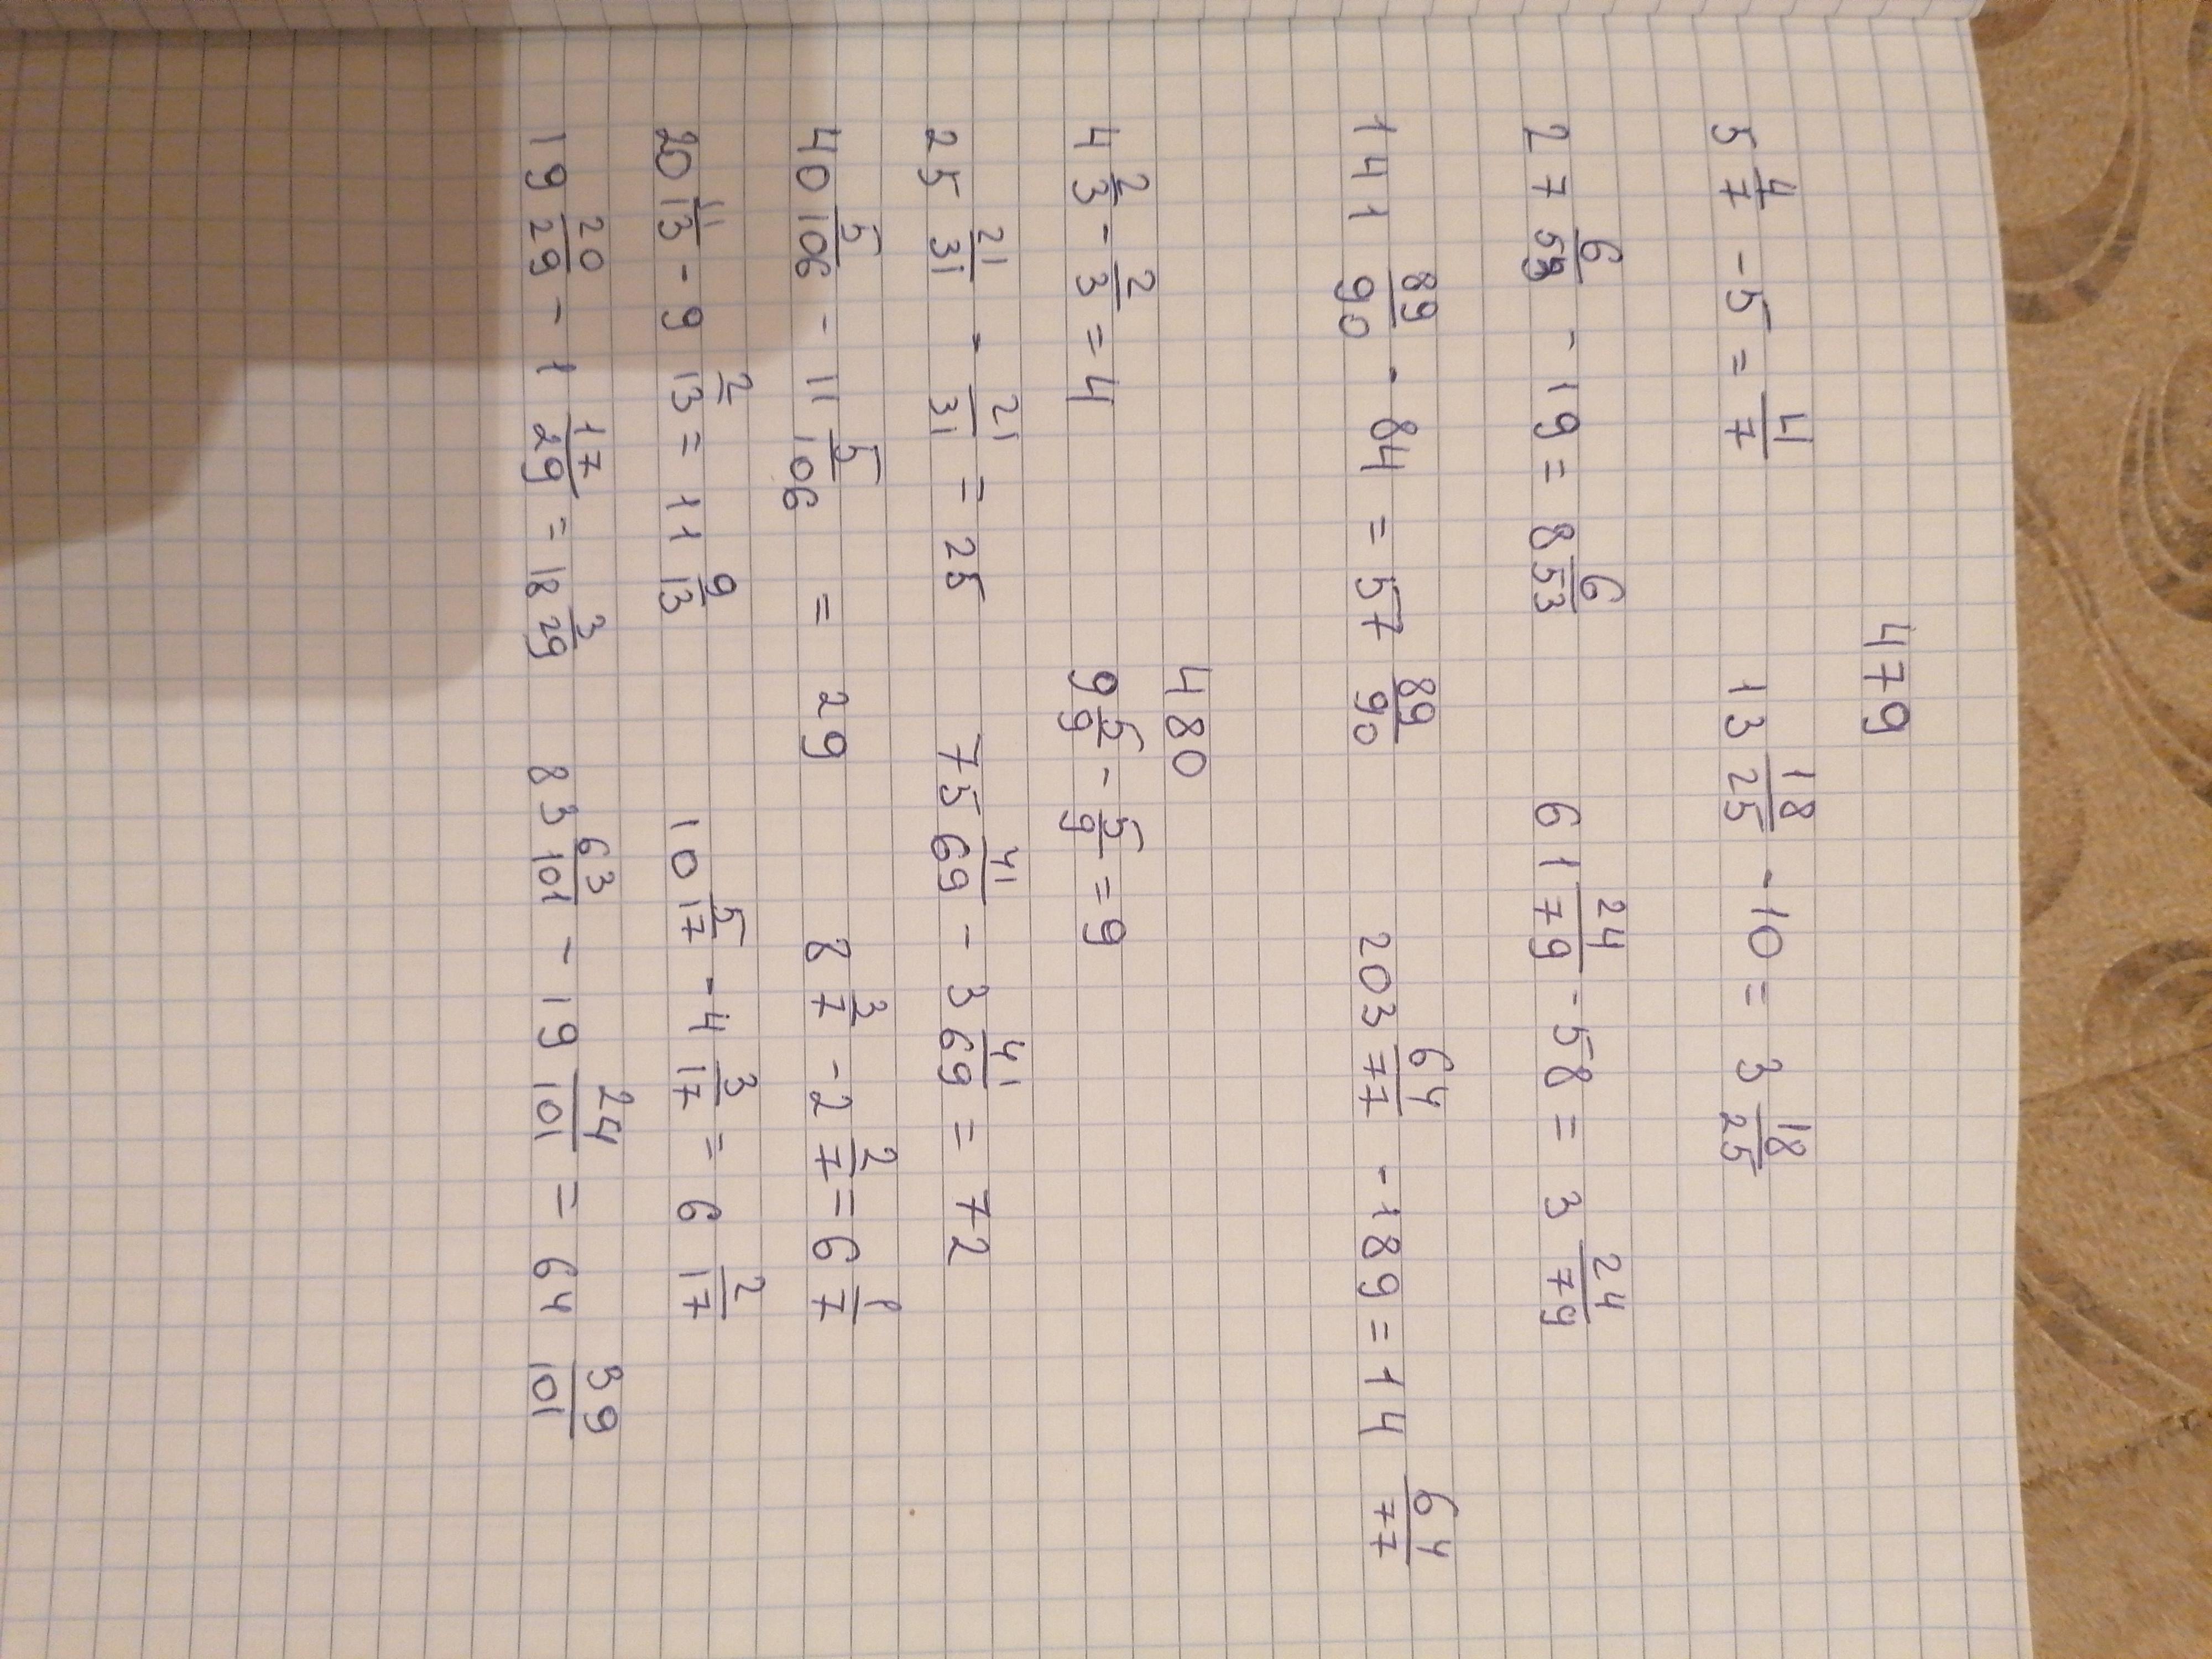 479
5 4/7 - 5 = 4/7 13 18/25 - 10 = 3 18/25
27 6/53 - 19 = 8 6/53 61 24/79 - 58 = 3 24/79
141 89/90 - 84 = 57 89/90 203 64/77 - 189 = 14 64/77
480
4 2/3 - 2/3 = 4 9 5/9 - 5/9 = 9
25 21/31 - 21/31 = 25 75 41/69 - 3 41/69 = 72
40 5/106 - 11 5/106 = 29 8 3/7 - 2 2/7 = 6 1/7
20 11/13 - 9 2/13 = 11 9/13 10 5/17 - 4 3/17 = 6 2/17
19 20/29 - 1 17/29 = 18 3/29 83 63/101 - 19 24/101 = 64 39/101